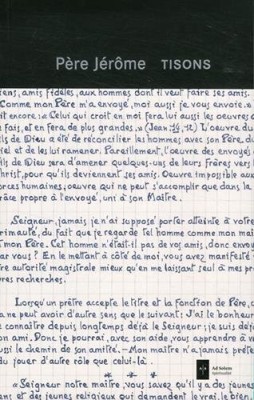 Père Jérôme TISONS
iens, amis fidèles, aux hommes dont il veut faire ses amis.
Comme mon Père m'a envoyé, moi aussi je vous envoie. »
dit encore: « Celui qui croit en moi fera lui aussi les œuvres q
fais, et en fera de plus grandes. » (Jean : 14, 12). L'œuvre du
ls de Dieu a été de réconcilier les hommes avec son Père du
iel et de les lui ramener. Pareillement, l'œuvre des envoyés
ils de Dieu sera d'amener quelques-uns de leurs frères vers l
hrist, pour qu'ils deviennent ses amis. Œuvre impossible aux
orces humaines, œuvre qui ne peut s'accomplir que dans la
râce propre à l'envoyé, uni à son Maître.
Seigneur, jamais, je n'ai supposé porter atteinte à votre
rimauté, du fait que je regarde tel homme comme mon maî
t mon Père. Cet homme n'était-il pas de vos amis, donc envoyé
ar vous ? En le mettant à côté de moi, vous avez manifesté
re autorité magistrale mieux qu'en me laissant seul à mes pr
res recherches.
Lorsqu'un prêtre accepte le titre et la fonction de Père,
a ne peut avoir d'autre sens que le suivant: J'ai le bonheur
e connaître depuis longtemps déjà le Seigneur; je suis déjà
on ami. Donc, je pourrai, avec son aide, vous apprendre à v
ussi le chemin de son amitié. — Mon maître n'a jamais, préte
du jouer d'autre rôle que celui-là.
* * *
« Seigneur notre maître, vous savez qu'il y a des jeunes
ens et des jeunes religieux qui demandent le vrai, le bien,
Ad Solem